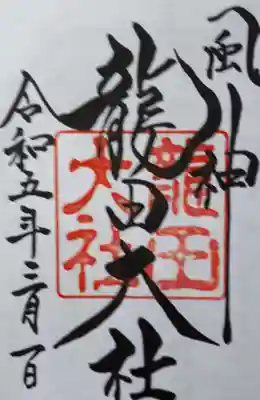 風神
龍田大社
龍田大社
令和五年三月一日